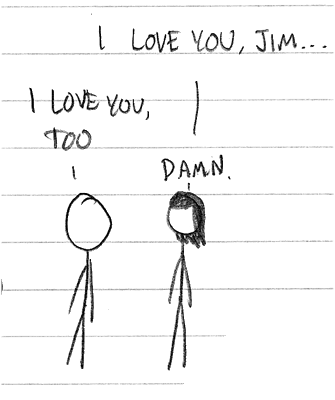 I LOVE YOU, JIM...
I LOVE YOU,
TOO
DAMN.